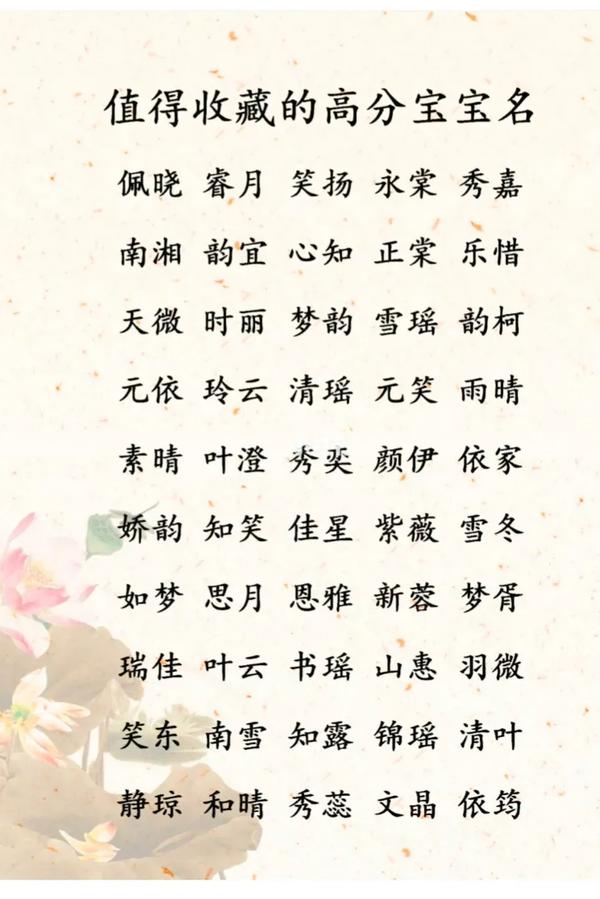 值得收藏的高分宝宝名
佩晓 睿月 笑扬 永棠 秀嘉
南湘 韵宜 心知 正棠 乐惜
天微 时丽 梦韵 雪瑶 韵柯
元依 玲云 清瑶 元笑 雨晴
素晴 叶澄 秀奕 颜伊 依家
娇韵 知笑 佳星 紫薇 雪冬
如梦 思月 恩雅 新蓉 梦胥
瑞佳 叶云 书瑶 山惠 羽微
笑东 南雪 知露 锦瑶 清叶
静琼 和晴 秀蕊 文晶 依筠